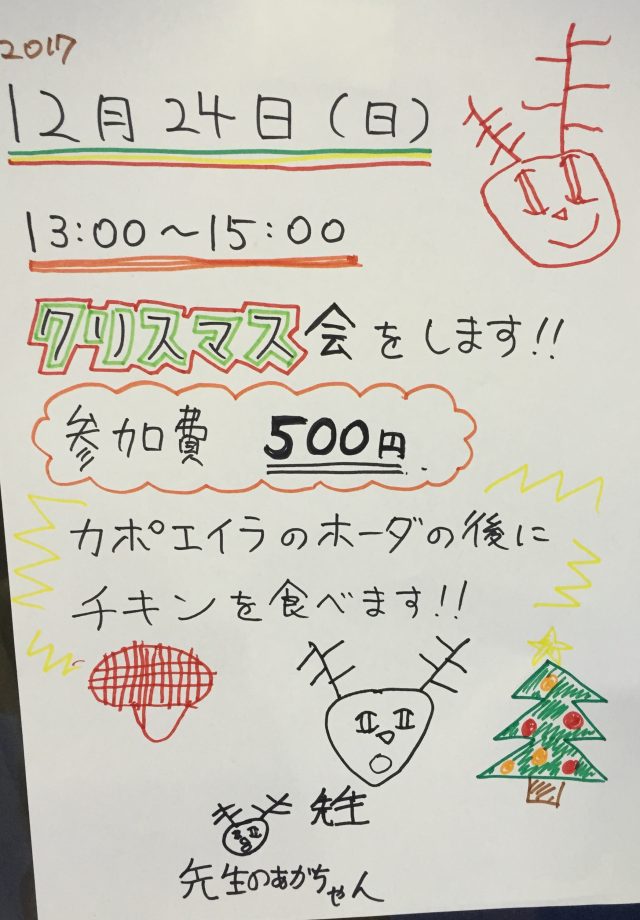 2017
12月24日(日)
13:00〜15:00
クリスマス会をします!!
参加費 500円
カポエイラのホーダの後に
チキンを食べます!!
先生
先生のあかちゃん